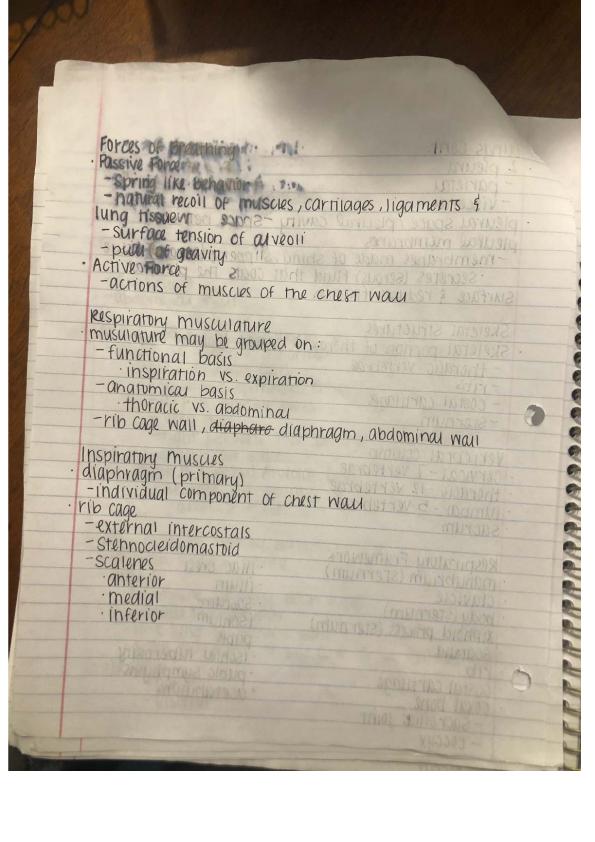 Forces of Breathing
· Passive Force
-Spring like behavior
-natural recoil of muscles, cartilages, ligaments &
lung tissue
-surface tension of alveoli
-pull of gravity
· Active Force
-actions of muscles of the chest wall
Respiratory musculature
· musulature may be grouped on:
-functional basis
· inspiration vs. expiration
-anatomical basis
· thoracic vs. abdominal
-rib cage wall, diaphare diaphragm, abdominal wall
Inspiratory muscles
· diaphragm (primary)
-individual component of chest wall
· rib cage
-external intercostals
-Stehnocleidomastoid
-Scalenes
· anterior
· medial
· inferior